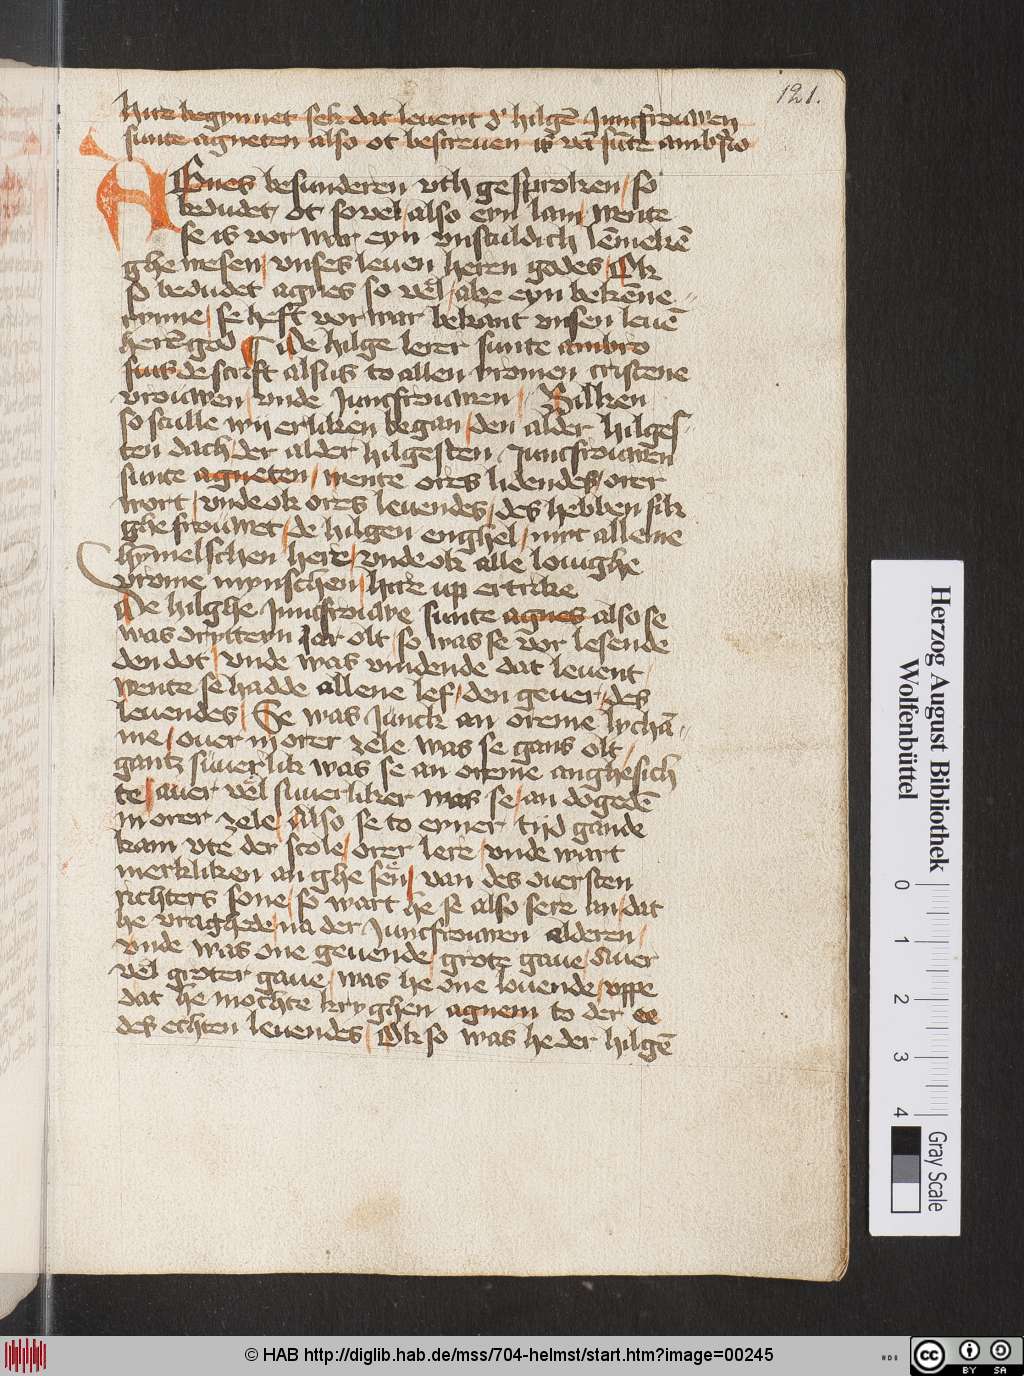 121.
Hire begynnet sek dat leuent d' hilgē Juncfrouwen
sunte agneten also ot bescreuen is vā sūte ambrōio
AGnes besunderen vth gesproken / so
bedudet ot so vel / also eyn lam / wente
se is vor war eyn vnsculdich lēmekē
ghe wesen / vnses leuen heren godes / Ok
so bedudet agnes so vel / alze eyn bekēne
rynne / se heft vor war bekant vnsen leuē
herē god De hilge lerer sunte ambro
sius de scrift alsus to allen vromen cristene
vrouwen / vnde Juncfrouwen / Silken
so sculle wy erliken began / den alder hilges
ten dach der alder hilgesten Juncfrouwen
sunte agneten / wente ores lidendes / orer
mort / vnde ok ores leuendes / des hebben sik
ghe frouwet / de hilgen enghel / myt alleme
hymelschen here / vnde ok alle louighe
vrome mynschen / hire up ertrike
De hilghe Juncfrouwe sunte agnes also se
was drytteyn Jar olt / so was se vor lesende
den dot / vnde was vindende dat leuent /
wente se hadde allene lef / den geuer / des
leuendes / Se was Junck an oreme lychā
me / ouer in orer zele was se gans olt /
gantz suuerlik was se an oreme anghesich
te / auer vel suuerliker was se / an dogedē
in orer zele / Also se to eyner tijd gande
kam vte der scole / orer lere / vnde wart
merkliken an ghe sen / van des ouersten
richters sone / so wart he se also sere an / dat
he vraghede / na der Juncfrouwen alderen /
vnde was one geuende grote gaue / auer
vel groter gaue / was he one louende / vppe
dat he mochte kryghen agnem to der ee
des echten leuendes / Ok so was he der hilgē
Herzog August Bibliothek
Wolfenbüttel
0 1 2 3 4
Gray Scale
© HAB http://diglib.hab.de/mss/704-helmst/start.htm?image=00245
cc BY SA